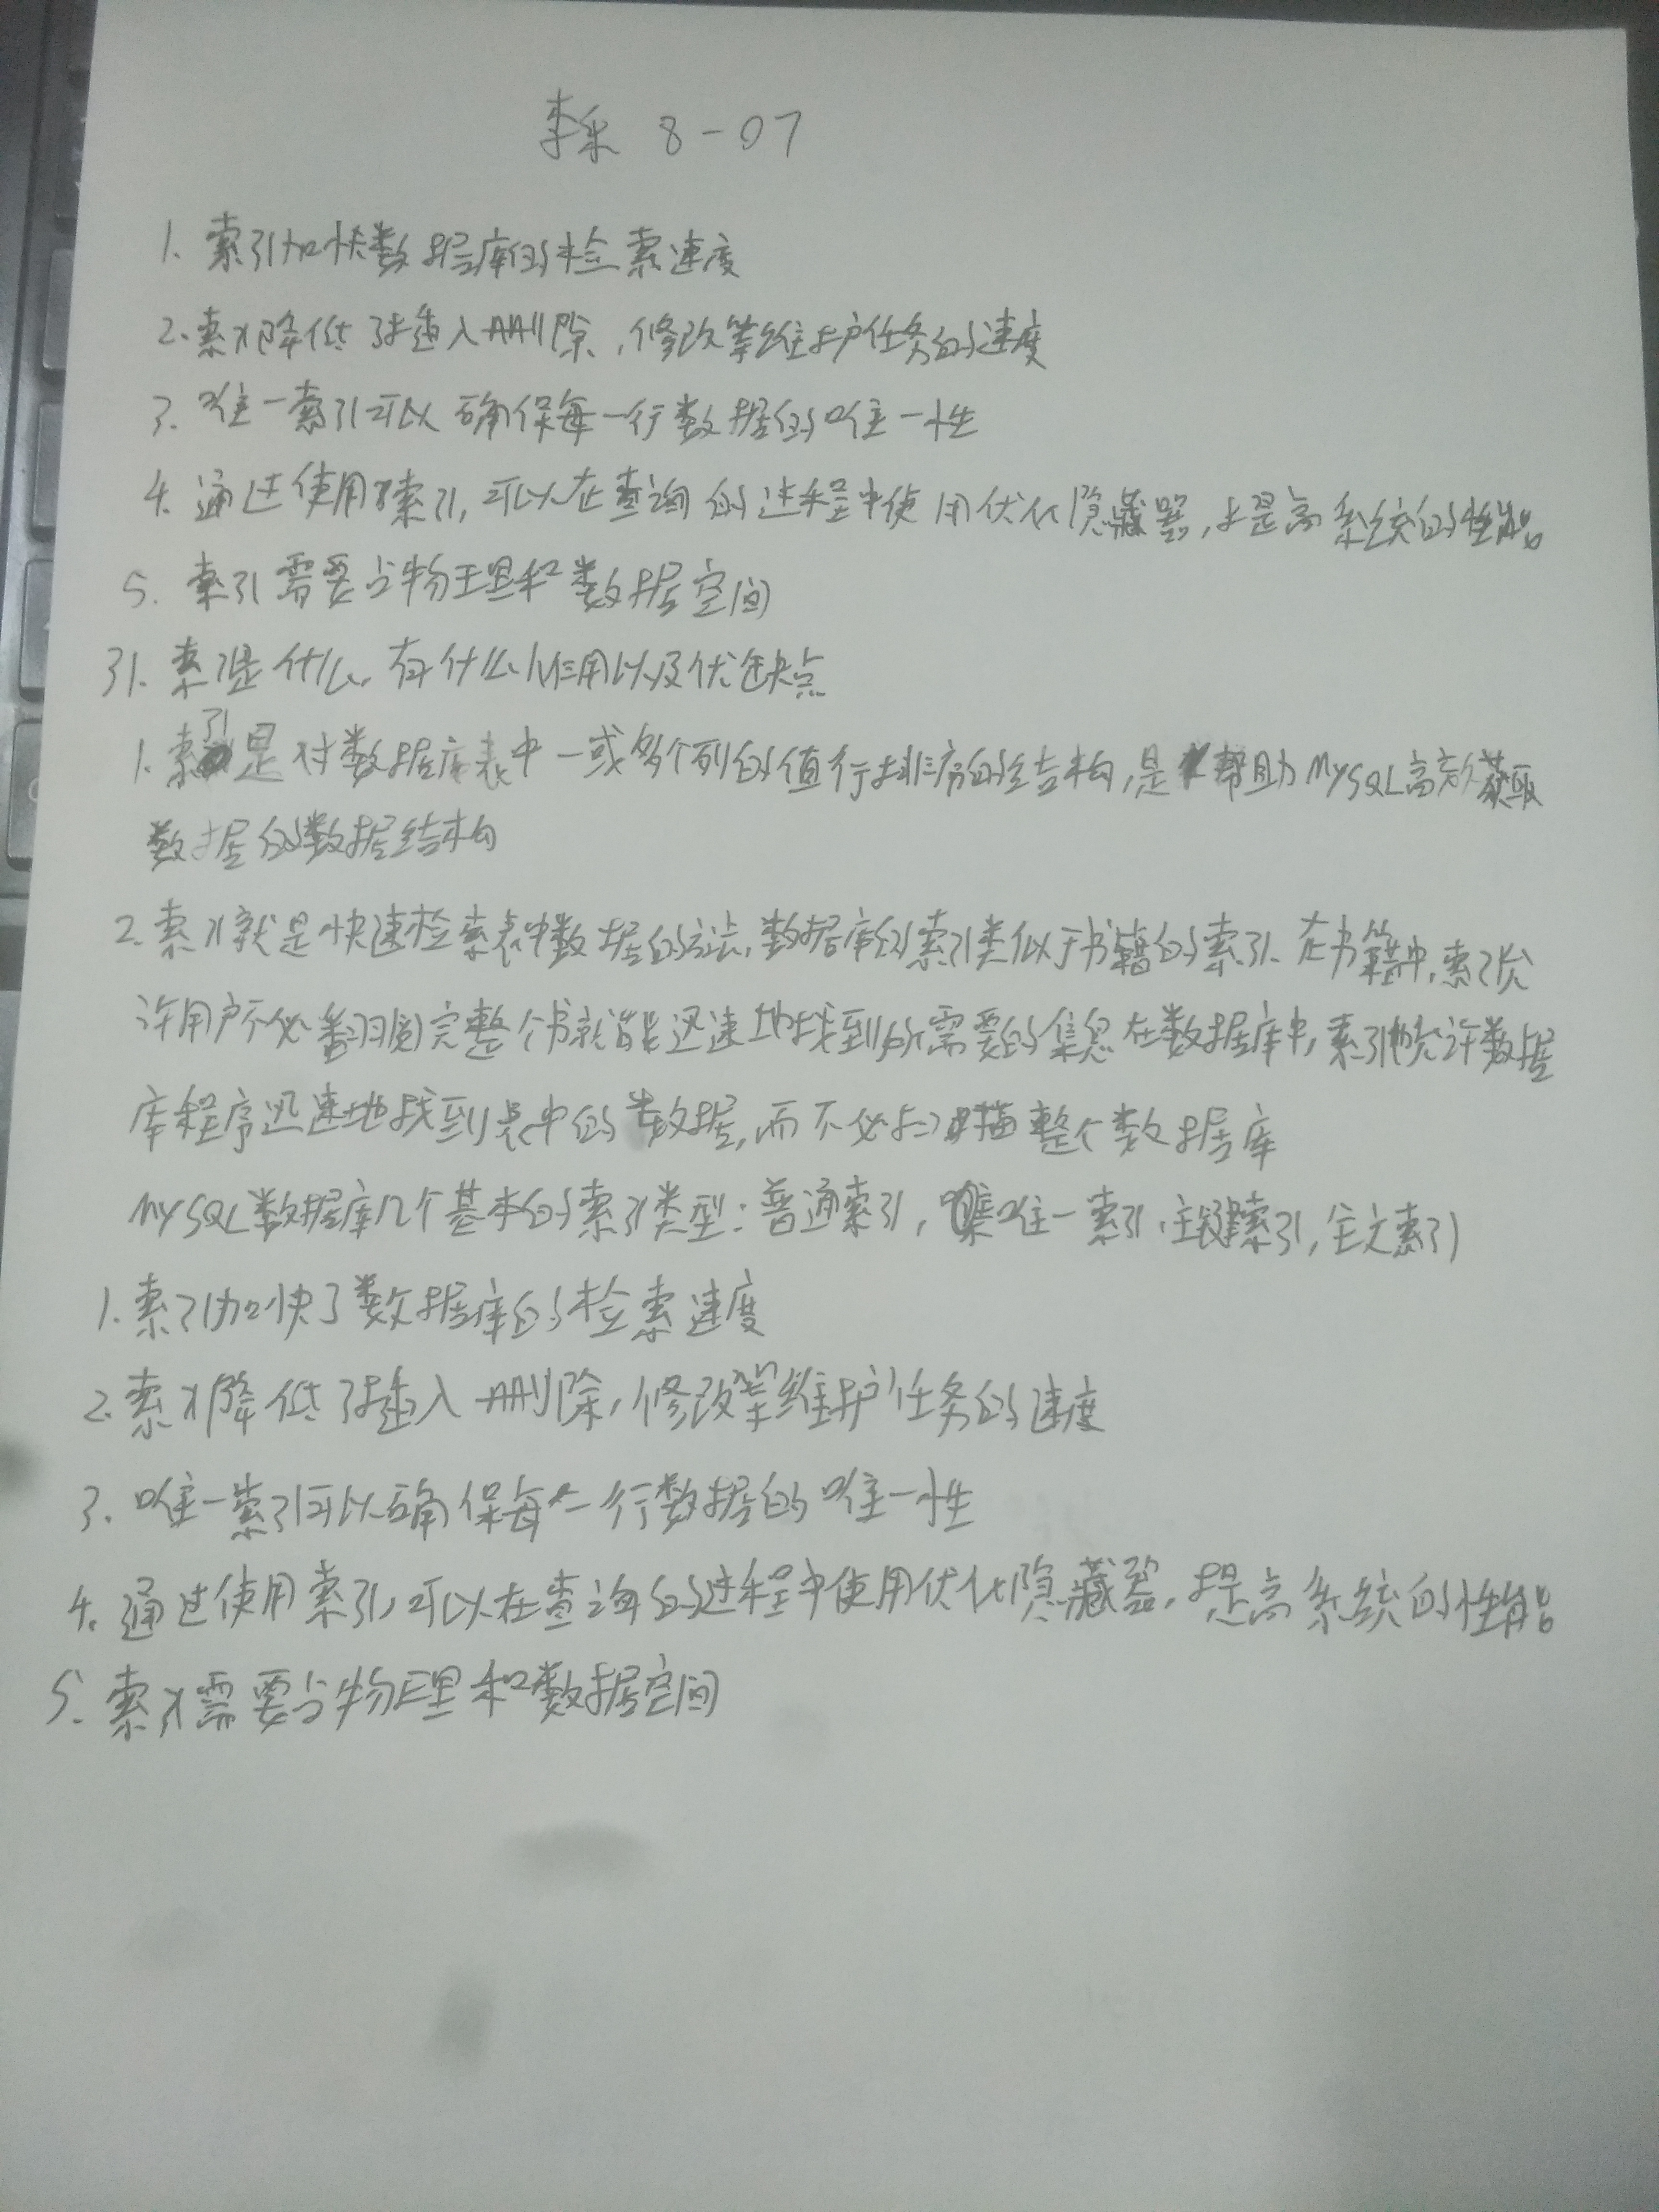 李采 8-07
1. 索引加快数据库的检索速度
2.索引降低了插入删除,修改等维护任务的速度
3. 唯一索引可以确保每一行数据的唯一性
4. 通过使用索引,可以在查询的过程中使用优化隐藏器,提高系统的性能
5. 索引需要占物理和数据空间
31. 索引是什么,有什么作用以及优缺点
1.索引是对数据库表中一或多个列的值行排序的结构,是帮助MySQL高效获取
数据的数据结构
2.索引就是快速检索表中数据的方法,数据库的索引类似于书籍的索引、在书籍中,索引允
许用户不必翻阅完整个书就能迅速地找到所需要的信息在数据库中,索引也允许数据
库程序迅速地找到表中的数据,而不必扫描整个数据库
MySQL数据库几个基本的索引类型:普通索引,唯一索引,主键索引,全文索引
1.索引加快了数据库的检索速度
2.索引降低了插入删除,修改等维护任务的速度
3.唯一索引可以确保每一行数据的唯一性
4.通过使用索引,可以在查询的过程中使用优化隐藏器,提高系统的性能
5.索引需要占物理和数据空间